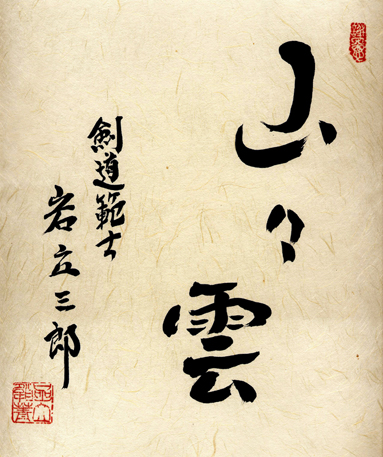 山々雲
剣道範士
岩立三郎